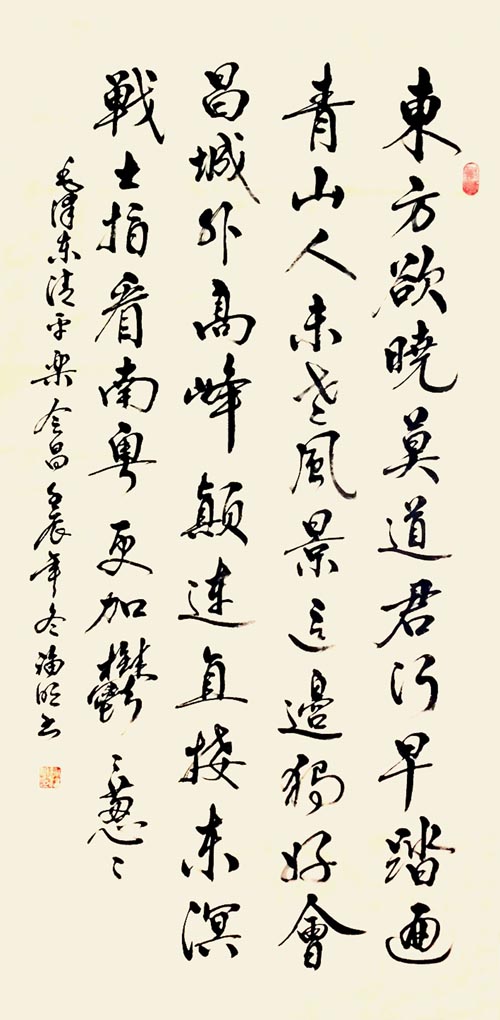 東方欲曉莫道君行早踏遍
青山人未老風景這邊獨好會
昌城外高峰顛連直接東溟
戰士指看南粵更加鬱〻葱〻
毛澤東清平樂會昌壬辰年冬書